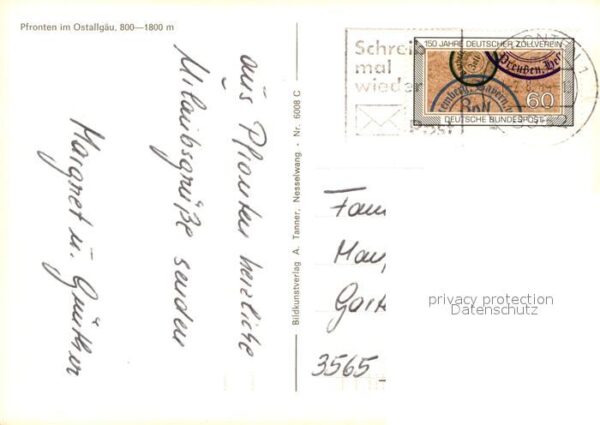 Pfronten im Ostallgäu, 800—1800 m
aus Pfronten herzliche
Urlaubsgrüße senden
Margret u. Günther
Bildkunstverlag A. Tanner, Nesselwang - Nr. 6008 C
Schrei
mal
wieder
Post
150 JAHRE DEUTSCHER ZOLLVEREIN
Preußen, Hes
Zoll
60
DEUTSCHE BUNDESPOST
PFRONTEN 1
Fam
3565
privacy protection
Datenschutz